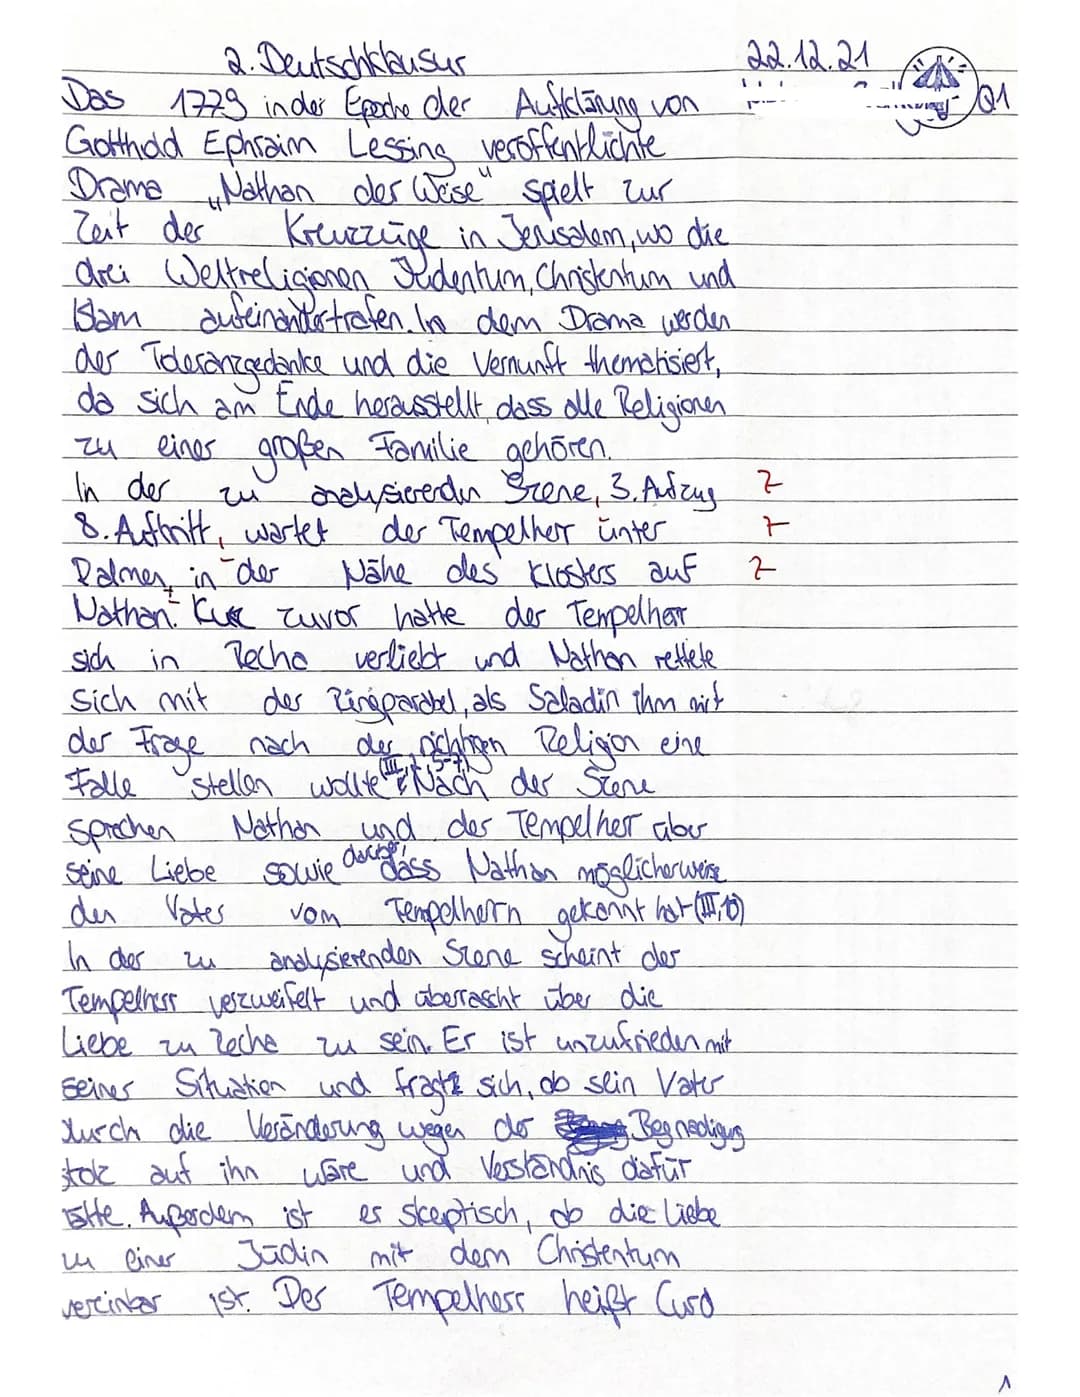 2. Deutschklausur 22.12.21
Das 1779 in der Epoche der Aufklärung von Q1
Gotthold Ephraim Lessing veröffentlichte
Drama „Nathan der Weise" spielt zur
Zeit der Kreuzzüge in Jerusalem, wo die
drei Weltreligionen Judentum, Christentum und
Islam aufeinandertrafen. In dem Drama werden
der Toleranzgedanke und die Vernunft thematisiert,
da sich am Ende herausstellt, dass alle Religionen
zu einer großen Familie gehören.
In der zu analysierenden Szene, 3. Aufzug Z
8. Auftritt, wartet der Tempelherr unter Z
Palmen, in der Nähe des Klosters auf Z
Nathan. Kurz zuvor hatte der Tempelherr
sich in Recha verliebt und Nathan rettete
sich mit der Ringparabel, als Saladin ihm mit
der Frage nach der richtigen Religion eine
Falle stellen wollte (III, 5-7). Nach der Szene
sprechen Nathan und der Tempelherr über
seine Liebe sowie darüber, dass Nathan möglicherweise
den Vater vom Tempelherrn gekannt hat (III, 10)
In der zu analysierenden Szene scheint der
Tempelherr verzweifelt und überrascht über die
Liebe zu Recha zu sein. Er ist unzufrieden mit
seiner Situation und fragt sich, ob sein Vater
durch die Veränderung wegen der Begnadigung
stolz auf ihn wäre und Verständnis dafür
hätte. Außerdem ist er skeptisch, ob die Liebe
zu einer Jüdin mit dem Christentum
vereinbar ist. Der Tempelherr heißt Curd
1